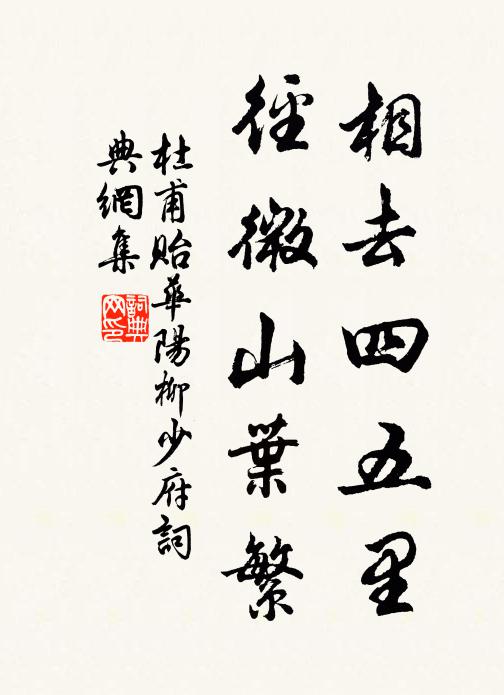 相去四五里
徑微山葉繁
杜甫貽華陽柳少府詞
典網集
詞典
网印